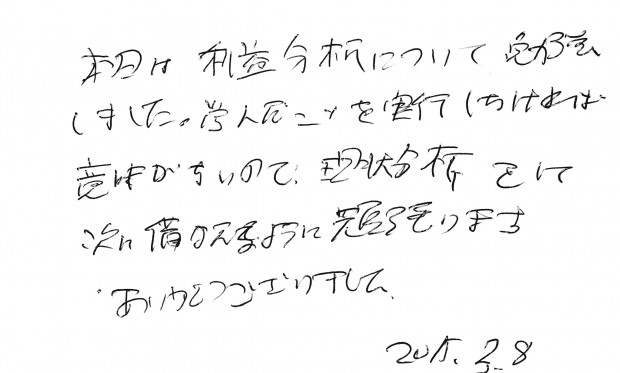 本日は利益分析について勉強
しました。学んだことを実行しなければ
意味がないので、現状分析をして
次に備えるように頑張ります
ありがとうございました。
2015. 2. 8